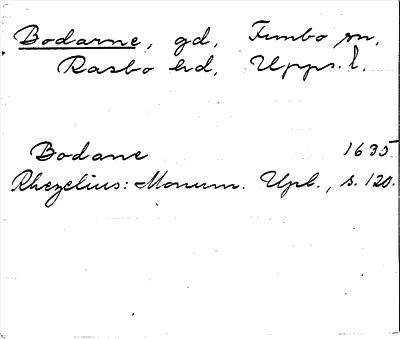 Bodarne, gd, Funbo sn,
Rasbo hd, Upps. l.
Bodane 1635
Rhezelius: Monum. Upl., s. 120.